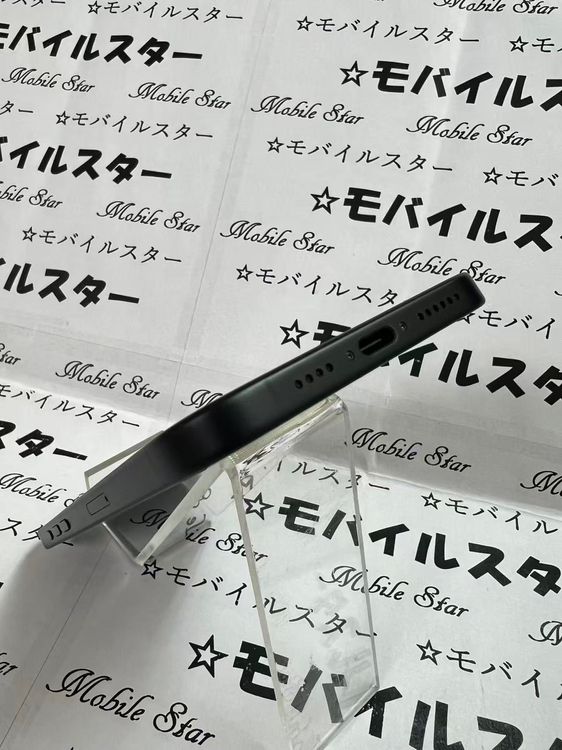 ☆モバイルスター
Mobile Star
☆モバイルスター
モバイルスター
☆モバイルスター
Mobile Star
Mobile Star
☆モバイルスター
Mobile Star
Mobile Star
☆モバイルスター
☆モバイルスター
Mobile Star
Mobile Star
☆モバイルスター
Mobile Star
Mobile Star
☆モバイルスター
☆モバイルスター
Mobile Star
Mobile Star
☆モバイルスター
Mobile Star
☆モバイルスター
Mobile Star
☆モバイルスター
Mobile Star
☆モバイルスター